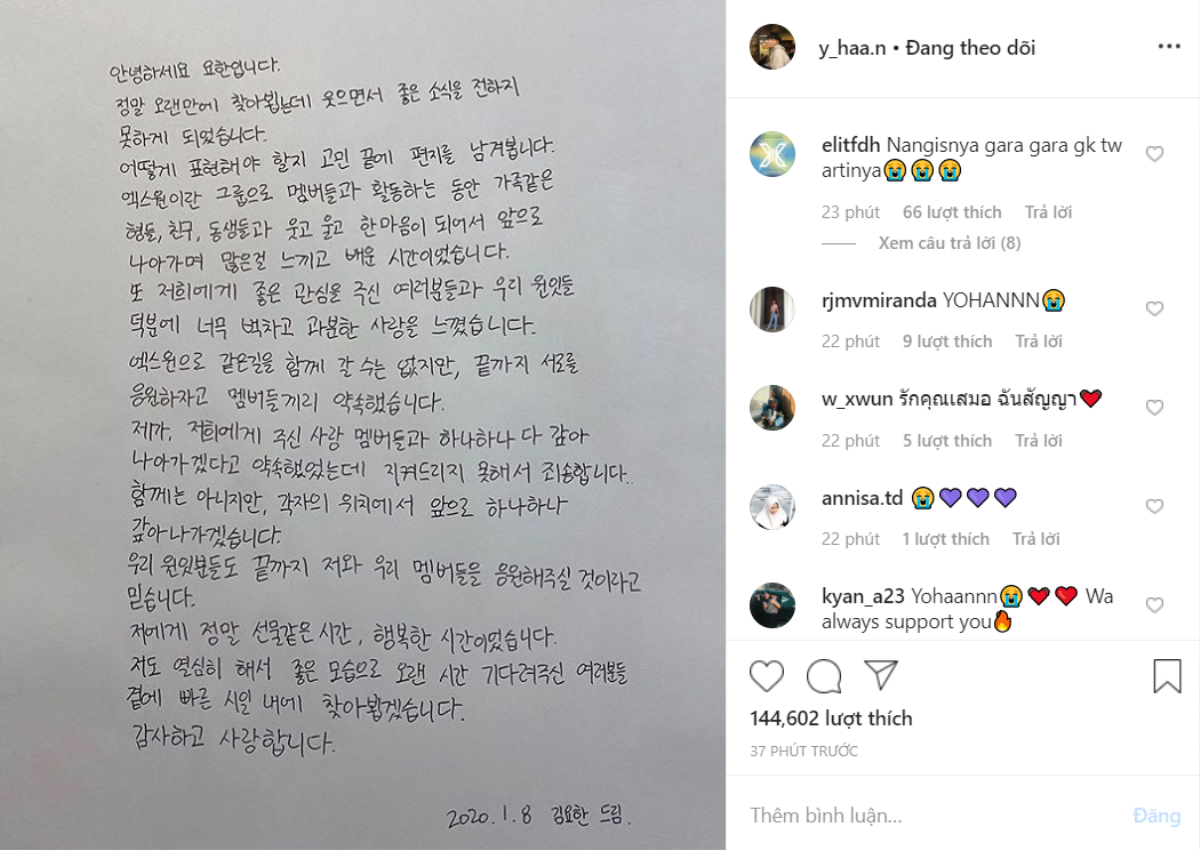 안녕하세요 요한입니다.
정말 오랜만에 찾아뵙는데 웃으면서 좋은 소식을 전하지
못하게 되었습니다.
어떻게 표현해야 할지 고민 끝에 편지를 남겨봅니다.
엑스원이란 그룹으로 멤버들과 활동하는 동안 가족같은
형들, 친구, 동생들과 웃고 울고 한마음이 되어서 앞으로
나아가며 많은걸 느끼고 배운 시간이었습니다.
또 저희에게 좋은 관심을 주신 여러분들과 우리 원잇들
덕분에 너무 벅차고 과분한 사랑을 느꼈습니다.
엑스원으로 같은길을 함께 갈 수는 없지만, 끝까지 서로를
응원하자고 멤버들끼리 약속했습니다.
제가, 저희에게 주신 사랑 멤버들과 하나하나 다 갚아
나아가겠다고 약속했었는데 지켜드리지 못해서 죄송합니다..
함께는 아니지만, 각자의 위치에서 앞으로 하나하나
갚아나가겠습니다.
우리 원잇분들도 끝까지 저와 우리 멤버들을 응원해주실 것이라고
믿습니다.
저에게 정말 선물같은 시간, 행복한 시간이었습니다.
저도 열심히 해서 좋은 모습으로 오랜 시간 기다려주신 여러분들
곁에 빠른 시일 내에 찾아뵙겠습니다.
감사하고 사랑합니다.
2020.1.8 김요한 드림.
y_haa.n • Đang theo dõi
elitfdh Nangisnya gara gara gk tw
artinya😭😭😭
23 phút 66 lượt thích Trả lời
Xem câu trả lời (8)
rjmvmiranda YOHANNN😭
22 phút 9 lượt thích Trả lời
w_xwun รักคุณเสมอ ฉันสัญญา❤
22 phút 5 lượt thích Trả lời
annisa.td 😭💜💜💜
22 phút 1 lượt thích Trả lời
kyan_a23 Yohaannn😭❤❤ Wa
always support you🔥
144,602 lượt thích
37 PHÚT TRƯỚC
Thêm bình luận... Đăng